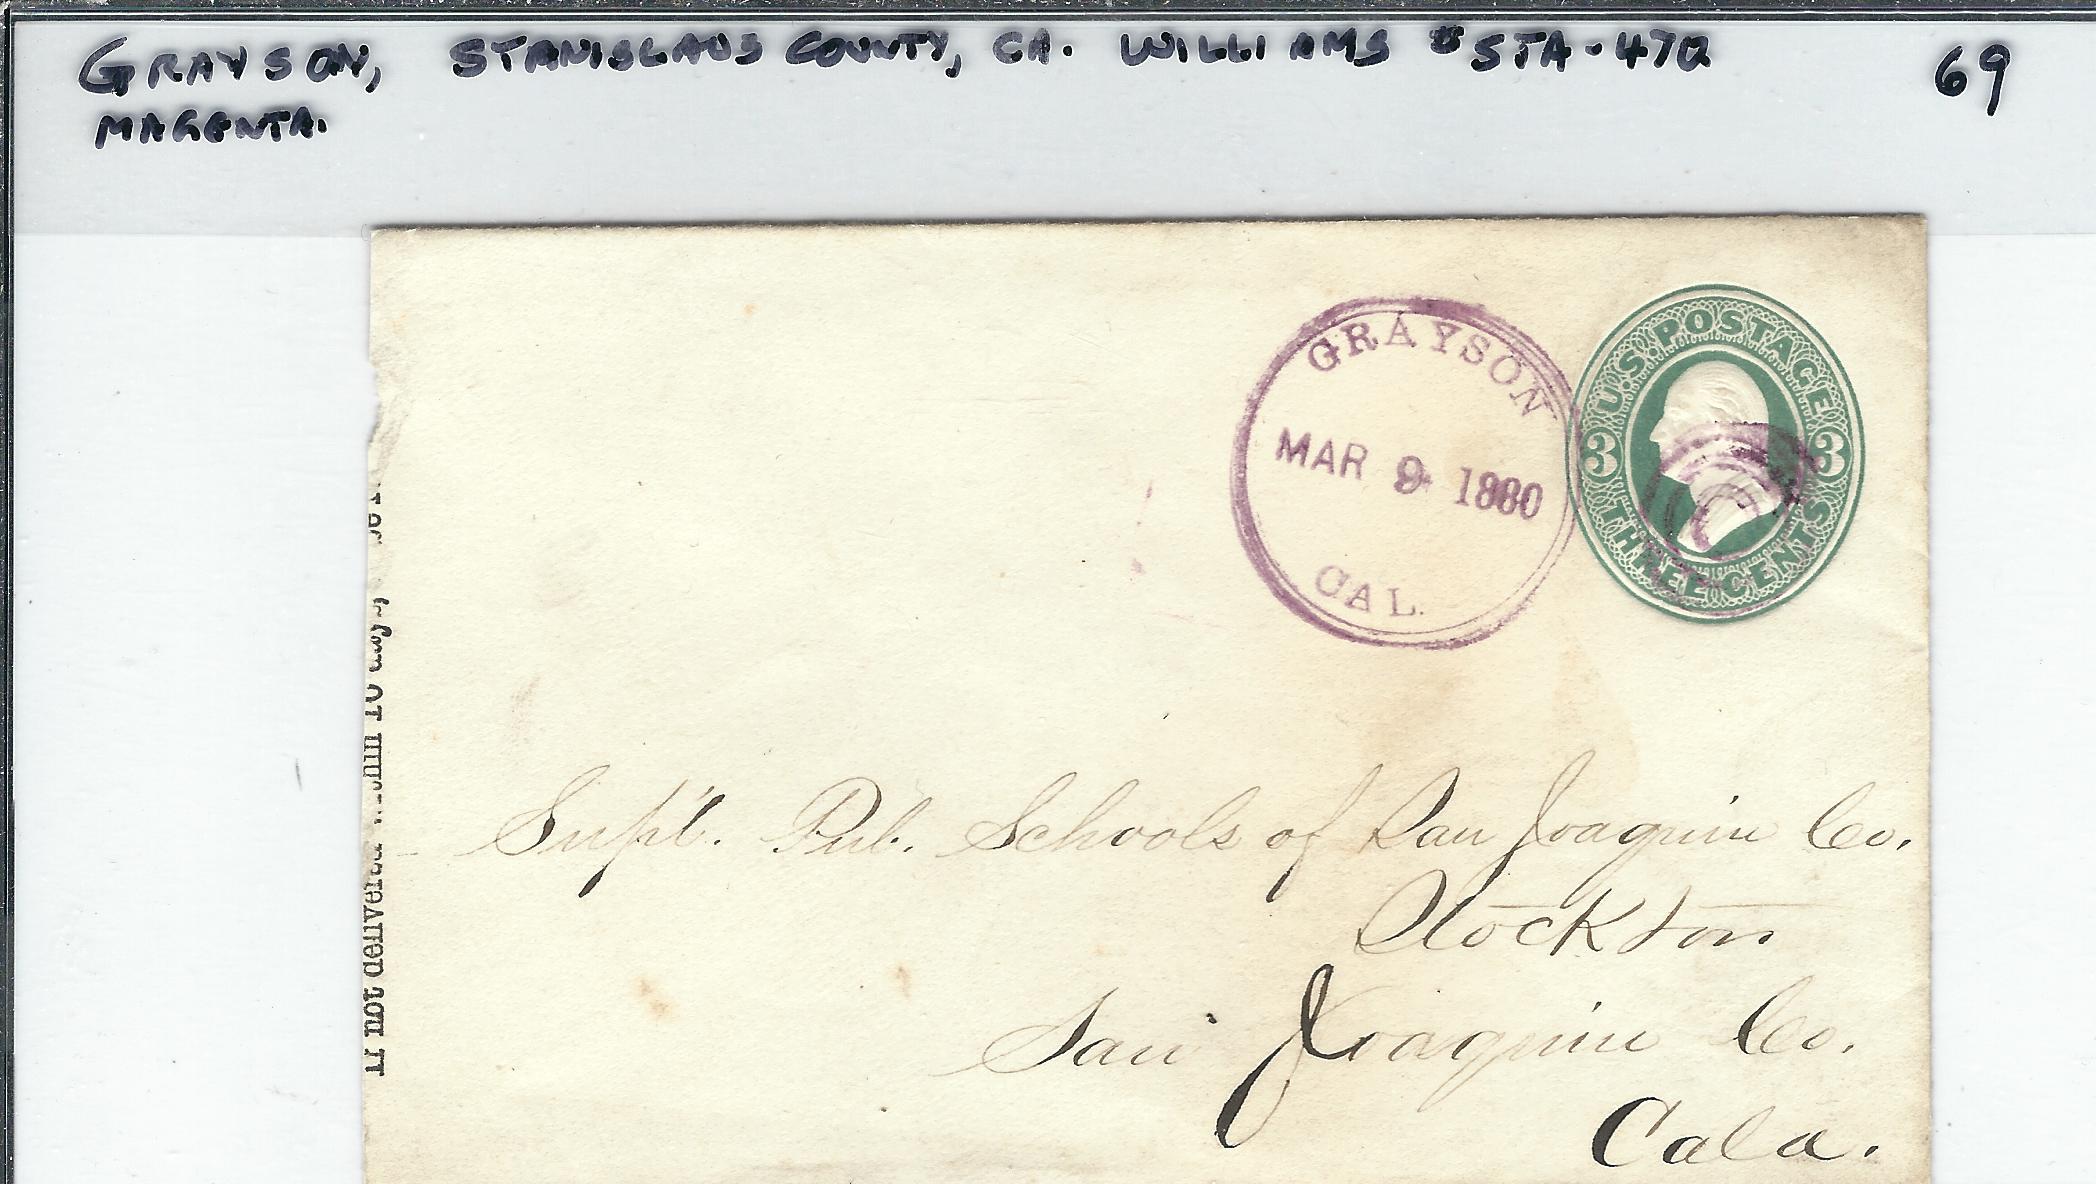 GRAYSON, STANISLAUS COUNTY, CA. WILLIAMS #STA-470 69
MAGENTA.
GRAYSON
MAR 9 1880
CAL.
U.S. POSTAGE
3 3
THREE CENTS
If not delivered within 10 days
Supt. Pub. Schools of San Joaquin Co.
Stockton
San Joaquin Co.
Cala.